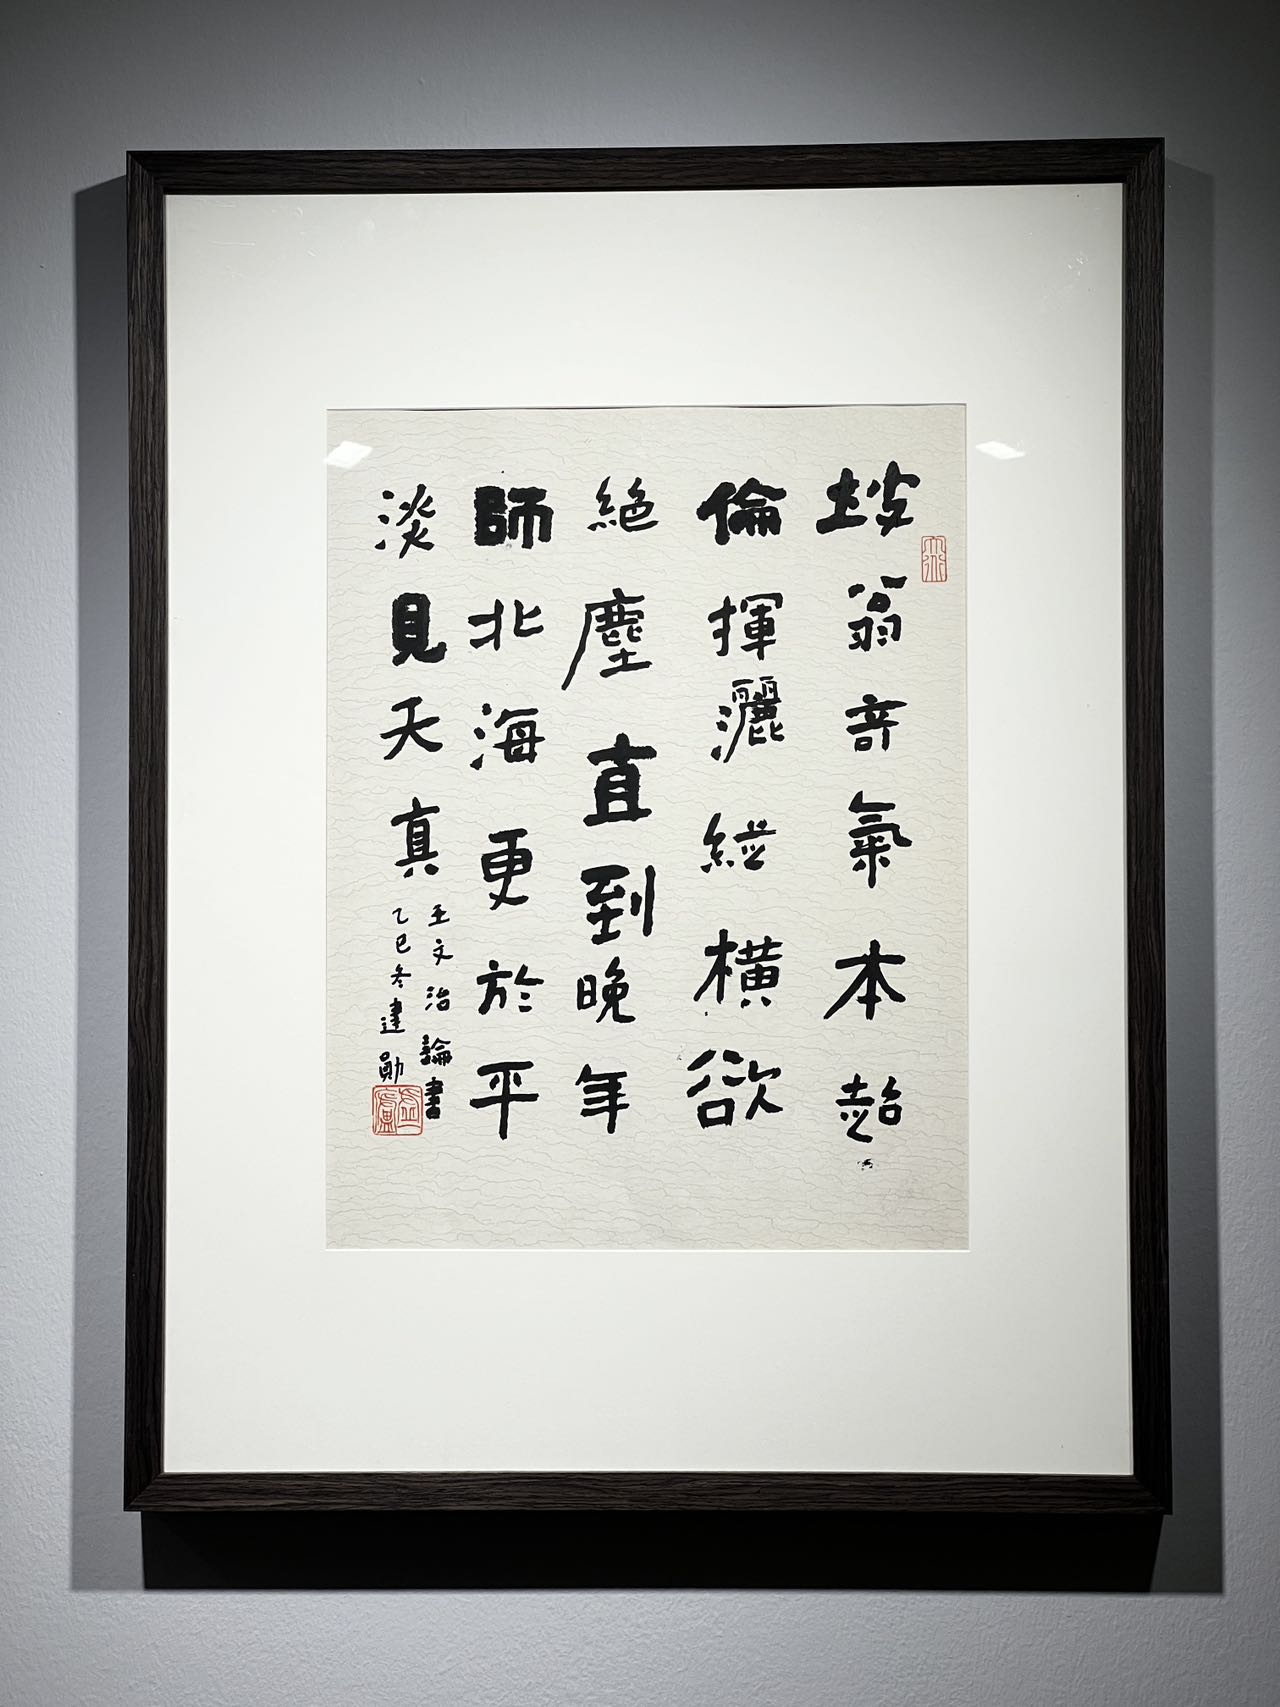 坡翁奇氣本超
倫揮灑縱橫欲
絕塵直到晚年
師北海更於平
淡見天真
王文治論書
乙巳冬建勛